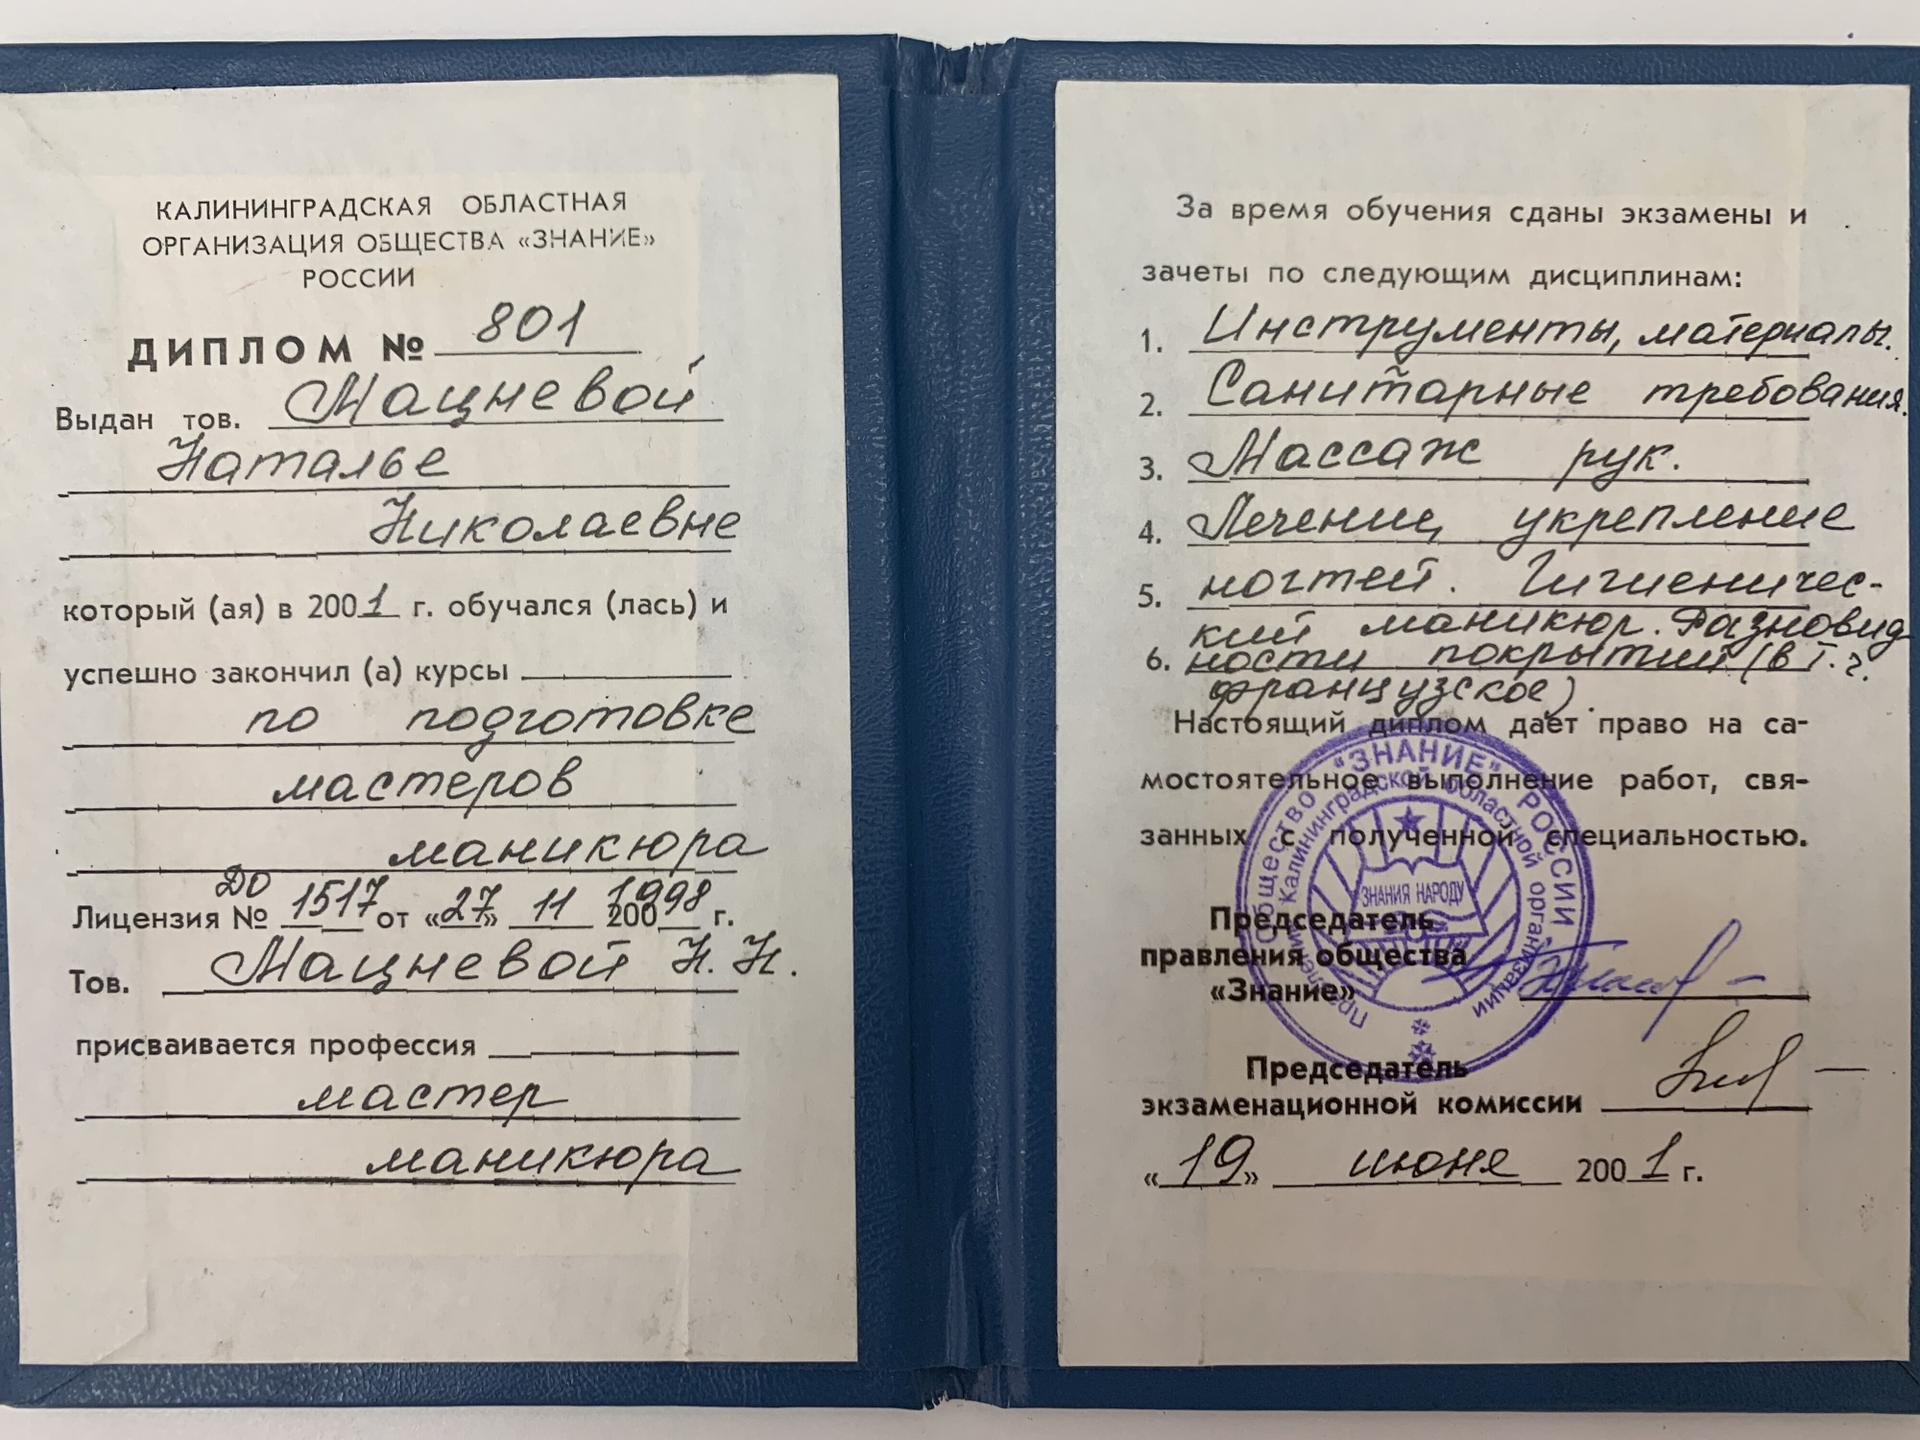 КАЛИНИНГРАДСКАЯ ОБЛАСТНАЯ
ОРГАНИЗАЦИЯ ОБЩЕСТВА «ЗНАНИЕ»
РОССИИ
ДИПЛОМ № 801
Выдан тов. Мацневой
Наталье
Николаевне
который (ая) в 2001 г. обучался (лась) и
успешно закончил (а) курсы
по подготовке
мастеров
маникюра
Лицензия № ДО 1517 от «27» 11 200 1998 г.
Тов. Мацневой Н. Н.
присваивается профессия
мастер
маникюра
За время обучения сданы экзамены и
зачеты по следующим дисциплинам:
1. Инструменты, материалы.
2. Санитарные требования.
3. Массаж рук.
4. Лечение, укрепление
5. ногтей. Гигиеничес-
кий маникюр. Разновид
6. ности покрытий (в т. ч.
французское).
Настоящий диплом дает право на са-
мостоятельное выполнение работ, свя-
занных с полученной специальностью.
Председатель
правления общества
«Знание»
Общество "ЗНАНИЕ" РОССИИ
Правление Калининградской областной организации
ЗНАНИЯ НАРОДУ
Председатель
экзаменационной комиссии
«19» июня 2001 г.